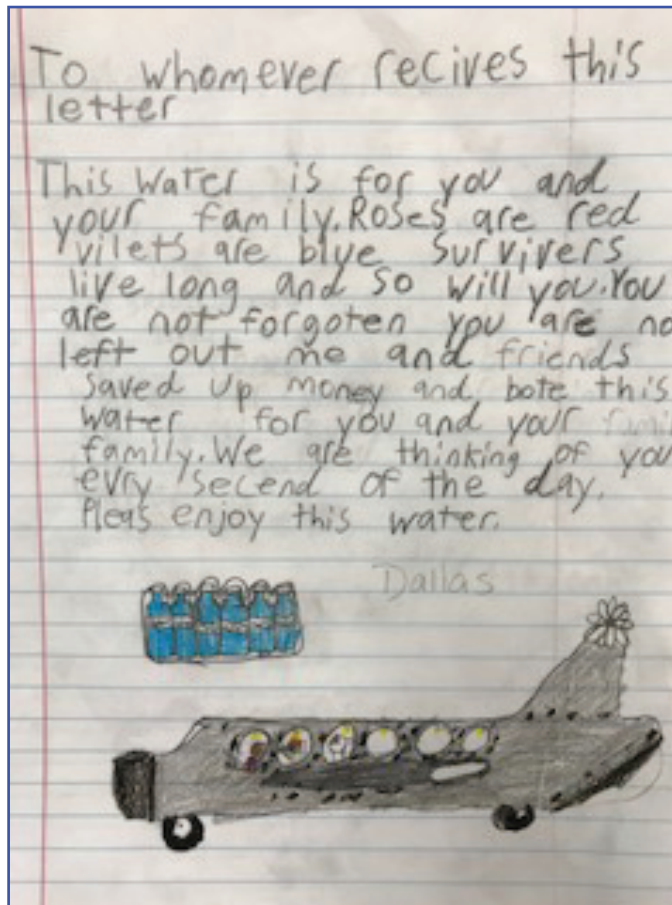 To whomever recives this
letter
This Water is for you and
your family. Roses are red
vilets are blue survivers
live long and so will you. You
are not forgoten you are no
left out me and friends
saved up money and bote this
water for you and your fami
family. We are thinking of you
evry secend of the day.
Pleas enjoy this water.
Dallas